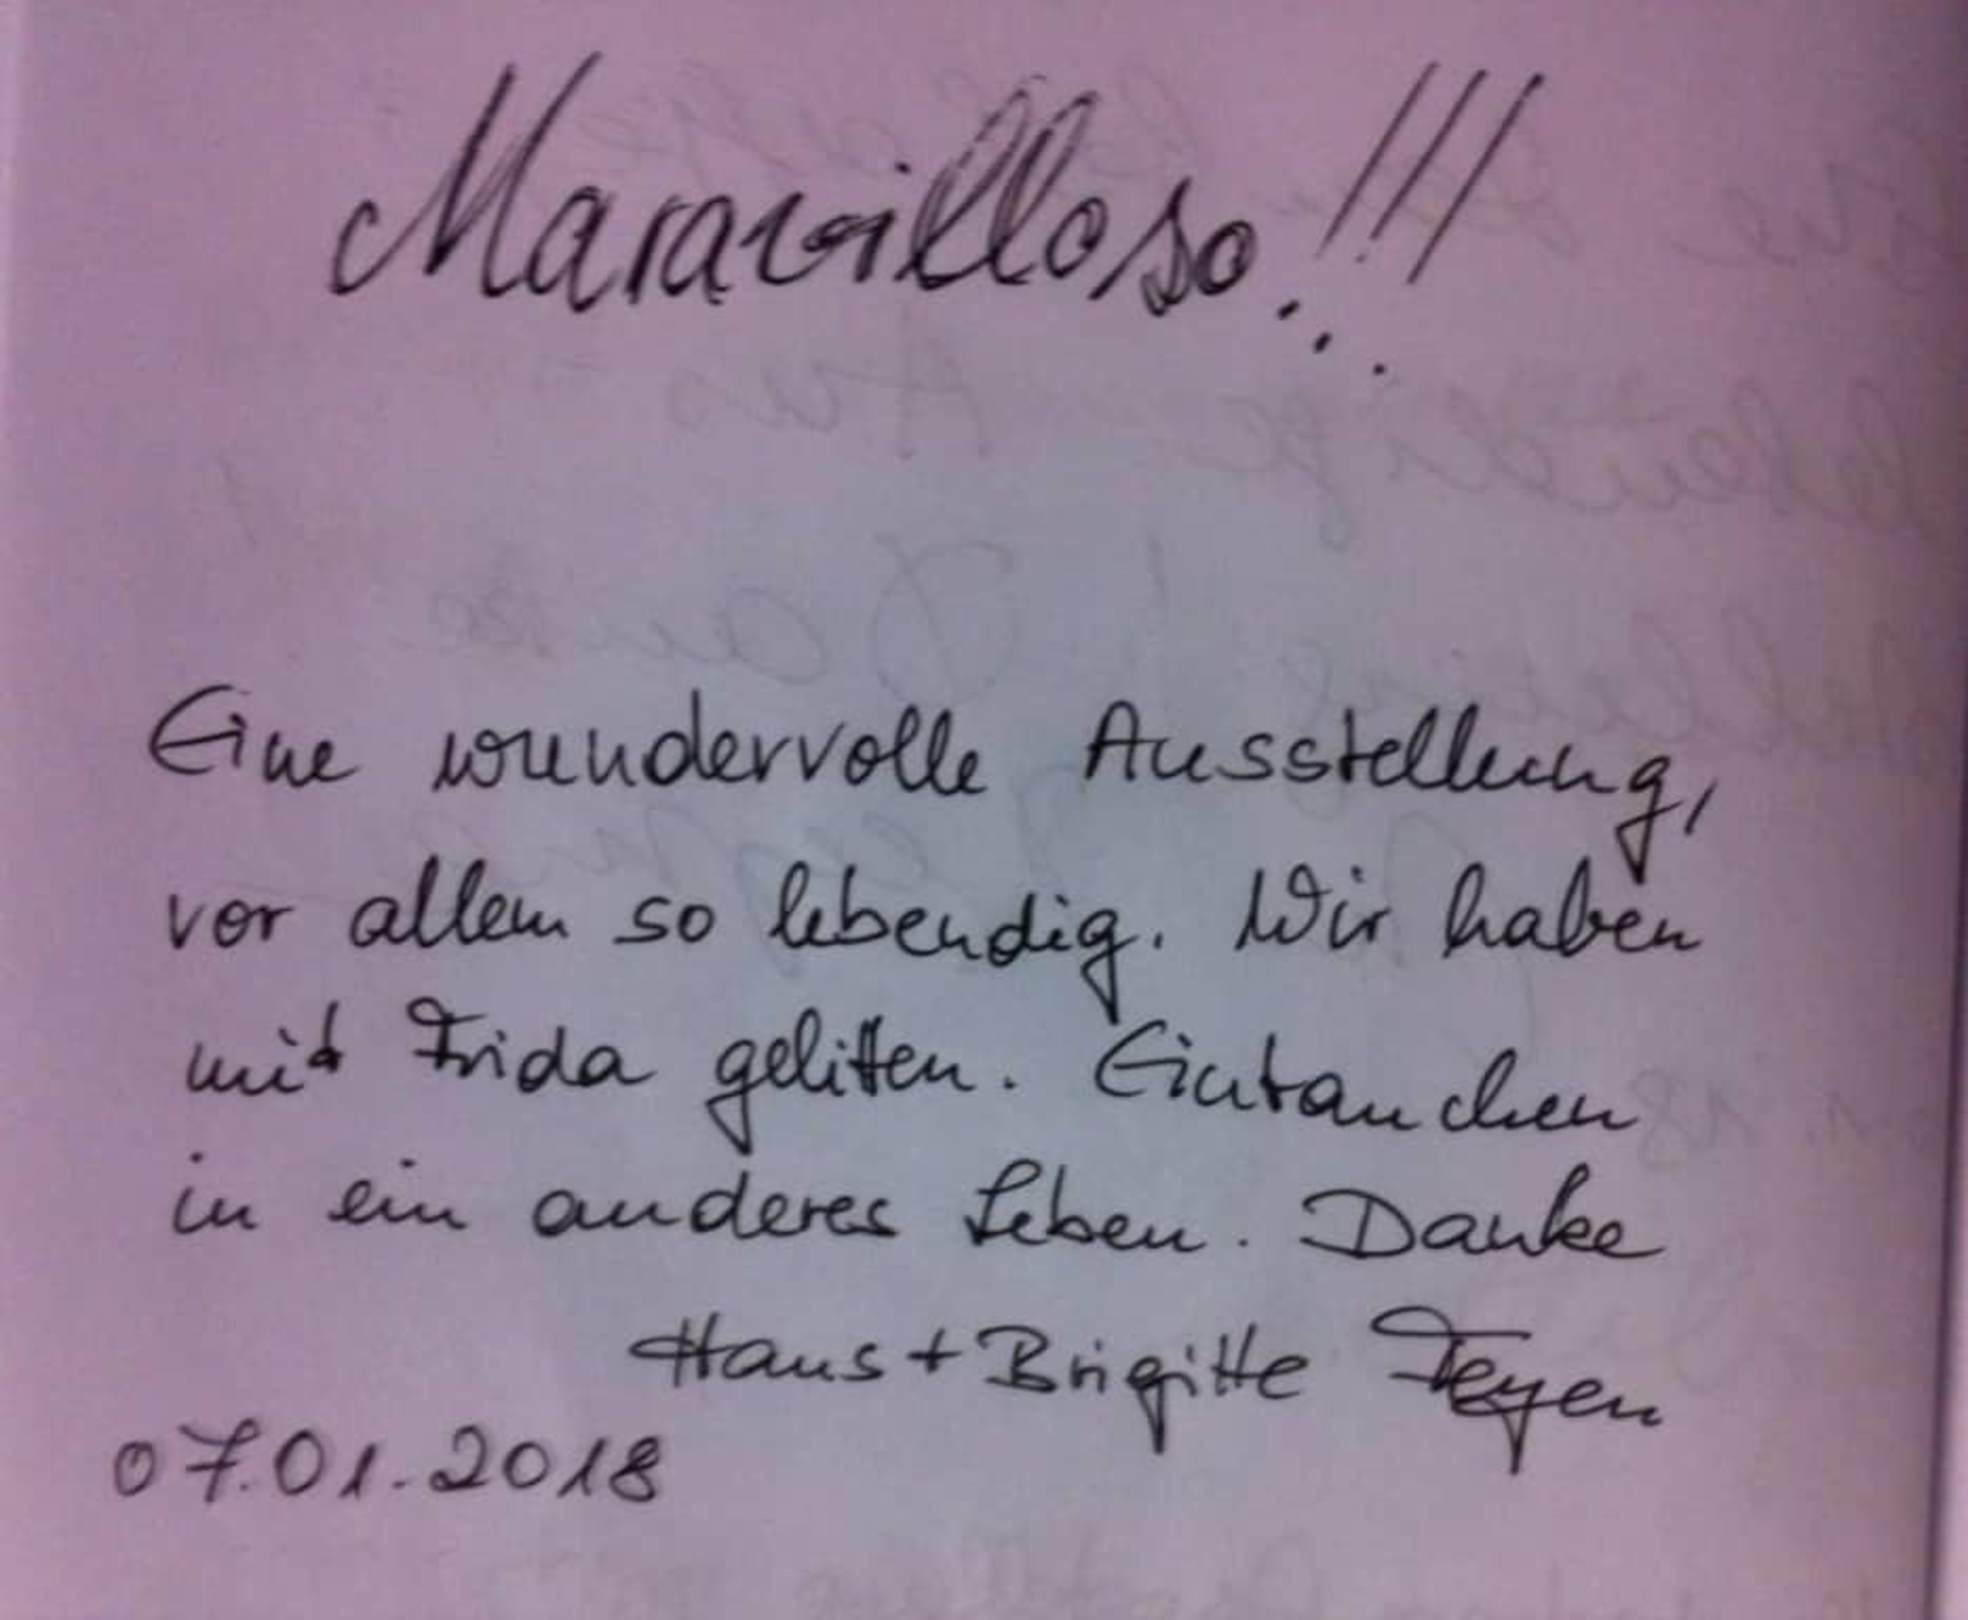 Maravilloso!!!
Eine wundervolle Ausstellung,
vor allem so lebendig. Wir haben
mit Frida gelitten. Eintauchen
in ein anderes Leben. Danke
Hans + Brigitte Feyen
07.01.2018